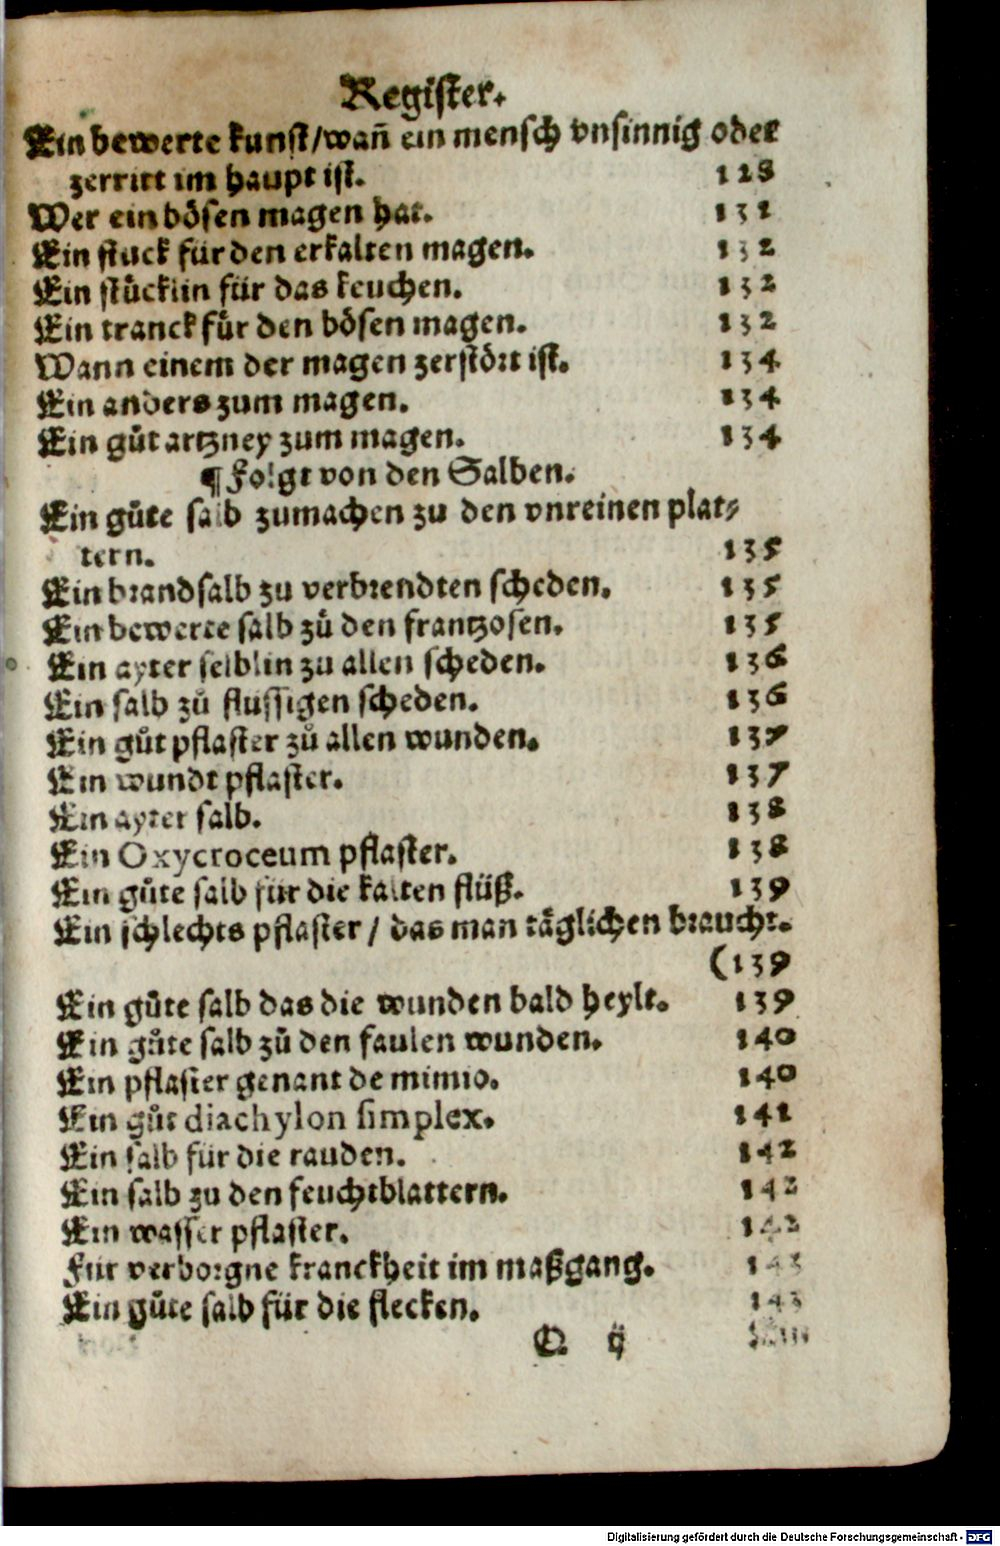 Register.
Ein bewerte kunst/wañ ein mensch vnsinnig oder
zerritt im haupt ist. 128
Wer ein bösen magen hat. 131
Ein stuck für den erkalten magen. 132
Ein stücklin für das keuchen. 132
Ein tranck für den bösen magen. 132
Wann einem der magen zerstört ist. 134
Ein anders zum magen. 134
Ein gůt artzney zum magen. 134
¶ Folgt von den Salben.
Ein gůte salb zumachen zu den vnreinen plat⸗
tern. 135
Ein brandsalb zu verbrendten scheden. 135
Ein bewerte salb zů den frantzosen. 135
Ein ayter selblin zu allen scheden. 136
Ein salb zů flussigen scheden. 136
Ein gůt pflaster zů allen wunden. 137
Ein wundt pflaster. 137
Ein ayter salb. 138
Ein Oxycroceum pflaster. 138
Ein gůte salb für die kalten flüß. 139
Ein schlechts pflaster / das man täglichen braucht.
(139
Ein gůte salb das die wunden bald heylt. 139
Ein gůte salb zů den faulen wunden. 140
Ein pflaster genant de mimio. 140
Ein gůt diachylon simplex. 141
Ein salb für die rauden. 142
Ein salb zu den feuchtblattern. 142
Ein wasser pflaster. 142
Für verborgne kranckheit im maßgang. 143
Ein gůte salb für die flecken. 143
Q ij
Digitalisierung gefördert durch die Deutsche Forschungsgemeinschaft - DFG